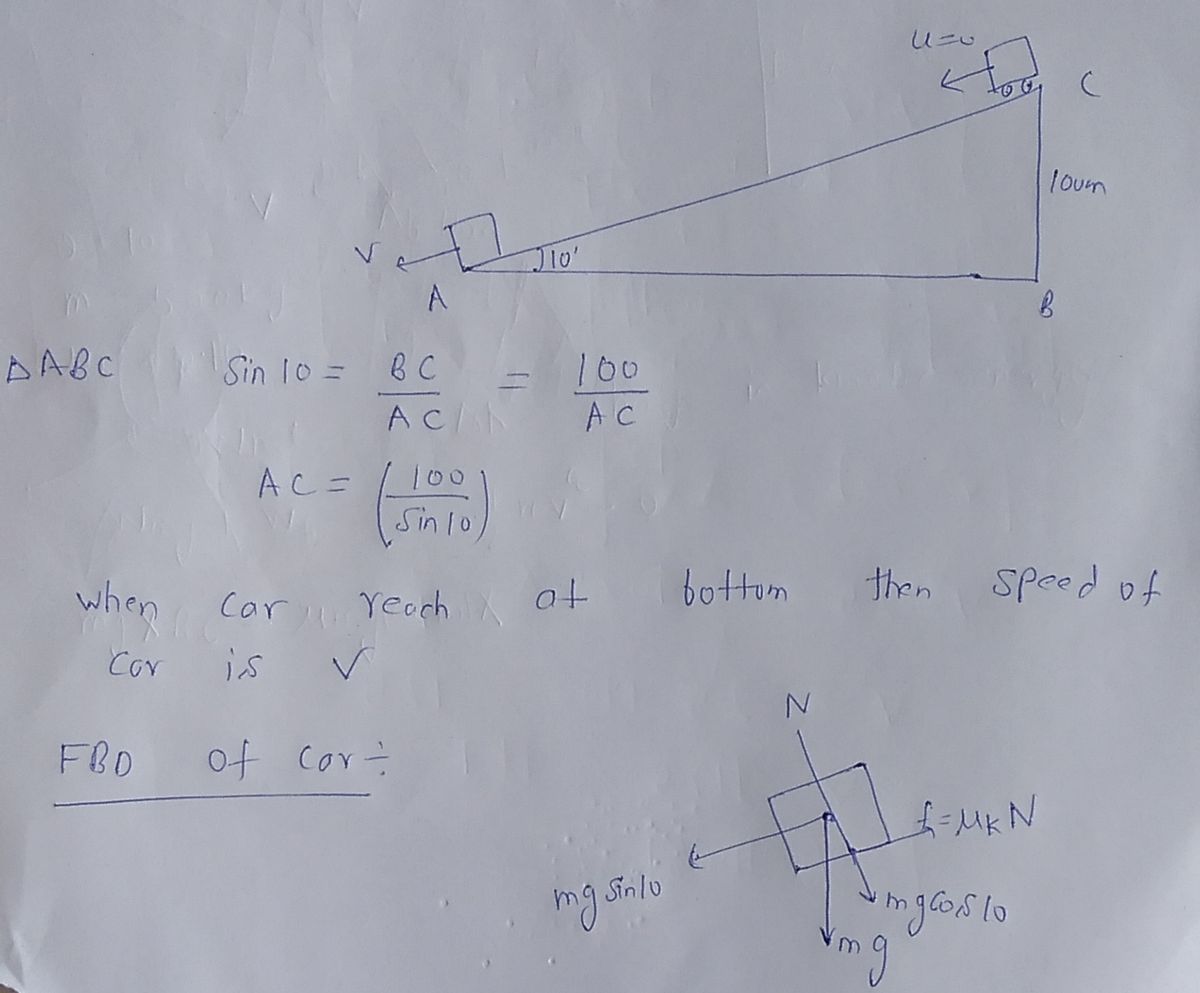 u=0
C
10um
V
10'
A
B
Δ ABC Sin 10 = BC/AC = 100/AC
AC = (100/Sin 10)
when car reach at bottom then speed of
car is V
FBD of car ÷
N
f=μK N
mg sin10
mg cos 10
mg